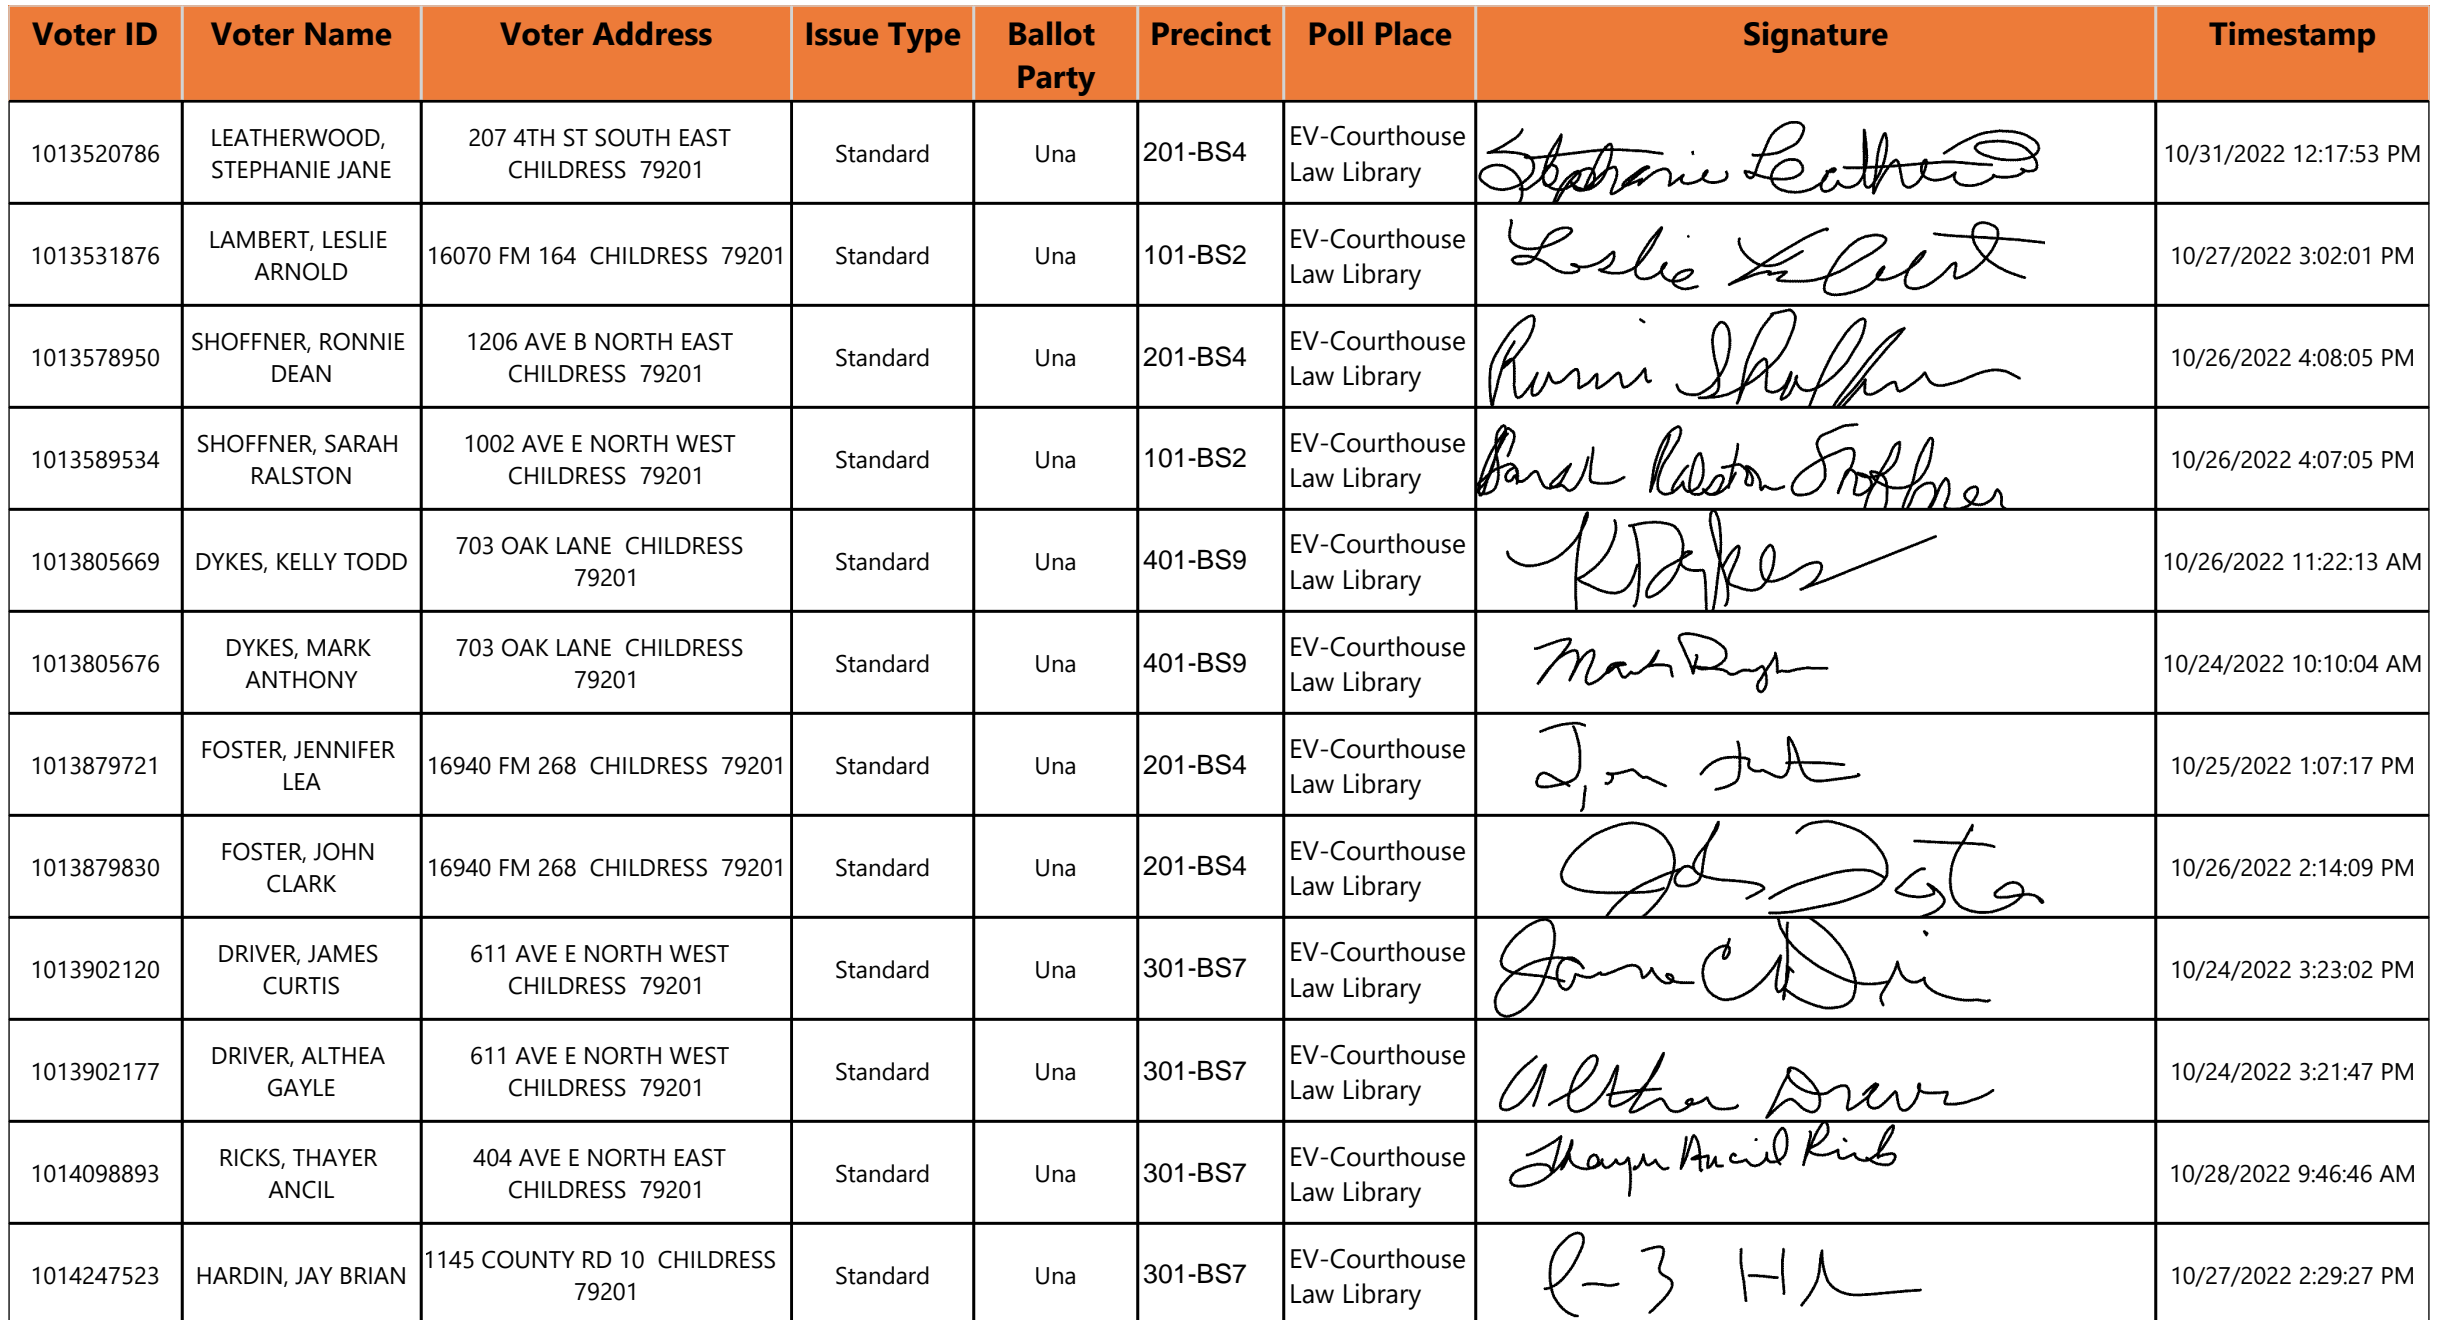 Voter ID Voter Name Voter Address Issue Type Ballot Party Precinct Poll Place Signature Timestamp
1013520786 LEATHERWOOD, STEPHANIE JANE 207 4TH ST SOUTH EAST CHILDRESS 79201 Standard Una 201-BS4 EV-Courthouse Law Library Stephanie 10/31/2022 12:17:53 PM
1013531876 LAMBERT, LESLIE ARNOLD 16070 FM 164 CHILDRESS 79201 Standard Una 101-BS2 EV-Courthouse Law Library Leslie 10/27/2022 3:02:01 PM
1013578950 SHOFFNER, RONNIE DEAN 1206 AVE B NORTH EAST CHILDRESS 79201 Standard Una 201-BS4 EV-Courthouse Law Library 10/26/2022 4:08:05 PM
1013589534 SHOFFNER, SARAH RALSTON 1002 AVE E NORTH WEST CHILDRESS 79201 Standard Una 101-BS2 EV-Courthouse Law Library Sarah Ralston Shoffner 10/26/2022 4:07:05 PM
1013805669 DYKES, KELLY TODD 703 OAK LANE CHILDRESS 79201 Standard Una 401-BS9 EV-Courthouse Law Library K Dykes 10/26/2022 11:22:13 AM
1013805676 DYKES, MARK ANTHONY 703 OAK LANE CHILDRESS 79201 Standard Una 401-BS9 EV-Courthouse Law Library Mark 10/24/2022 10:10:04 AM
1013879721 FOSTER, JENNIFER LEA 16940 FM 268 CHILDRESS 79201 Standard Una 201-BS4 EV-Courthouse Law Library 10/25/2022 1:07:17 PM
1013879830 FOSTER, JOHN CLARK 16940 FM 268 CHILDRESS 79201 Standard Una 201-BS4 EV-Courthouse Law Library 10/26/2022 2:14:09 PM
1013902120 DRIVER, JAMES CURTIS 611 AVE E NORTH WEST CHILDRESS 79201 Standard Una 301-BS7 EV-Courthouse Law Library 10/24/2022 3:23:02 PM
1013902177 DRIVER, ALTHEA GAYLE 611 AVE E NORTH WEST CHILDRESS 79201 Standard Una 301-BS7 EV-Courthouse Law Library 10/24/2022 3:21:47 PM
1014098893 RICKS, THAYER ANCIL 404 AVE E NORTH EAST CHILDRESS 79201 Standard Una 301-BS7 EV-Courthouse Law Library Thayer Ancil Ricks 10/28/2022 9:46:46 AM
1014247523 HARDIN, JAY BRIAN 1145 COUNTY RD 10 CHILDRESS 79201 Standard Una 301-BS7 EV-Courthouse Law Library 10/27/2022 2:29:27 PM